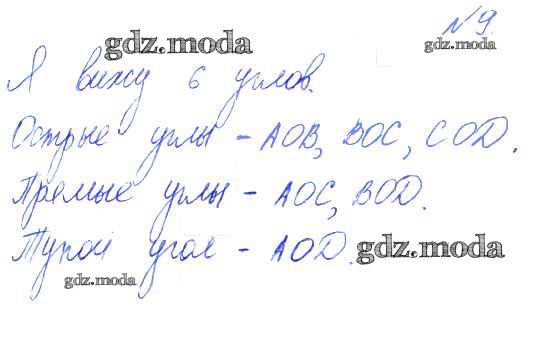 №9.
gdz.moda
gdz.moda
Я вижу 6 углов.
Острые углы - АОВ, ВОС, СОD.
Прямые углы - АОС, ВОD.
Тупой угол - АОD.
gdz.moda
gdz.moda